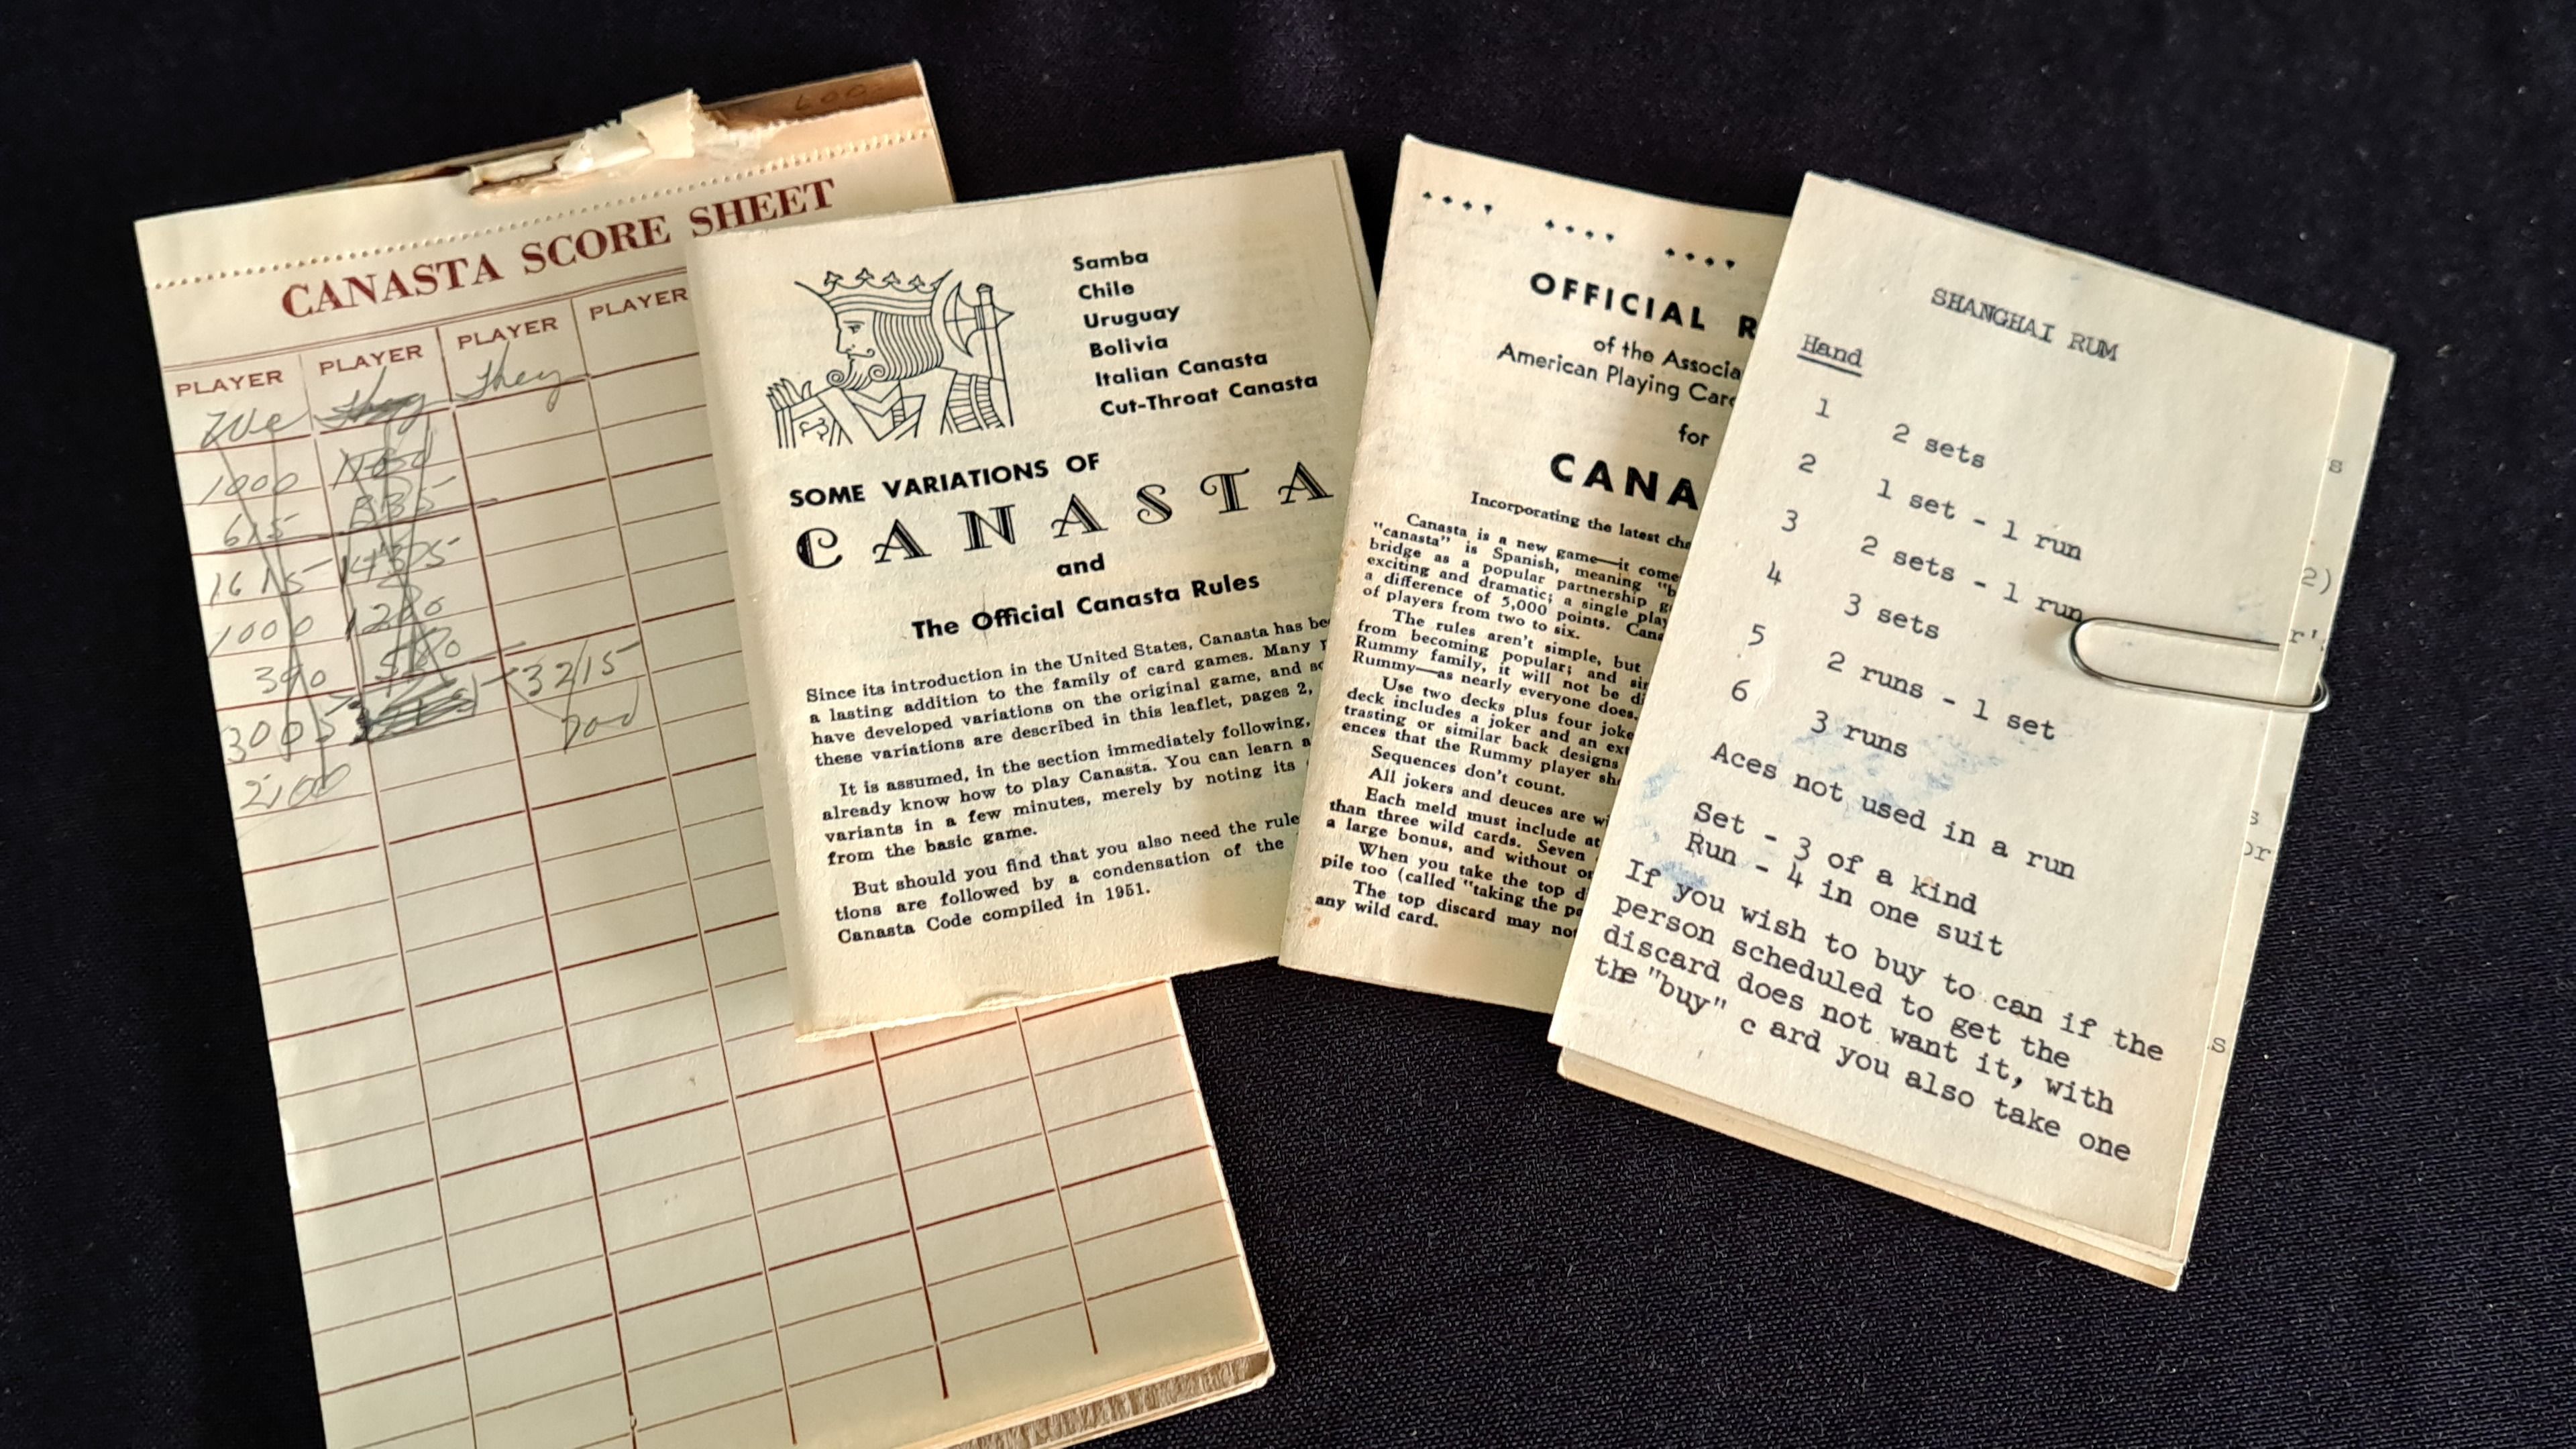 600
CANASTA SCORE SHEET
PLAYER PLAYER PLAYER PLAYER
We They They
1000
615 835
1615
1000 1280
390 580
3005 3215
2100 700
Samba
Chile
Uruguay
Bolivia
Italian Canasta
Cut-Throat Canasta
SOME VARIATIONS OF
CANASTA
and
The Official Canasta Rules
Since its introduction in the United States, Canasta has be
a lasting addition to the family of card games. Many
have developed variations on the original game, and so
these variations are described in this leaflet, pages 2,
It is assumed, in the section immediately following,
already know how to play Canasta. You can learn a
variants in a few minutes, merely by noting its
from the basic game.
But should you find that you also need the rule
tions are followed by a condensation of the
Canasta Code compiled in 1951.
OFFICIAL R
of the Associa
American Playing Card
for
CANA
Incorporating the latest cha
Canasta is a new game—it come
"canasta" is Spanish, meaning "b
bridge as a popular partnership g
exciting and dramatic; a single play
a difference of 5,000 points. Cana
of players from two to six.
The rules aren't simple, but
from becoming popular; and sin
Rummy family, it will not be di
Rummy—as nearly everyone does.
Use two decks plus four joke
deck includes a joker and an ext
trasting or similar back designs
ences that the Rummy player sho
Sequences don't count.
All jokers and deuces are wi
Each meld must include at
than three wild cards. Seven
a large bonus, and without or
When you take the top d
pile too (called "taking the pa
The top discard may not
any wild card.
SHANGHAI RUM
Hand
1 2 sets
2 1 set - 1 run
3 2 sets - 1 run
4 3 sets
5 2 runs - 1 set
6 3 runs
Aces not used in a run
Set - 3 of a kind
Run - 4 in one suit
If you wish to buy to can if the
person scheduled to get the
discard does not want it, with
the "buy" c ard you also take one
s
2)
r'
s
or
s